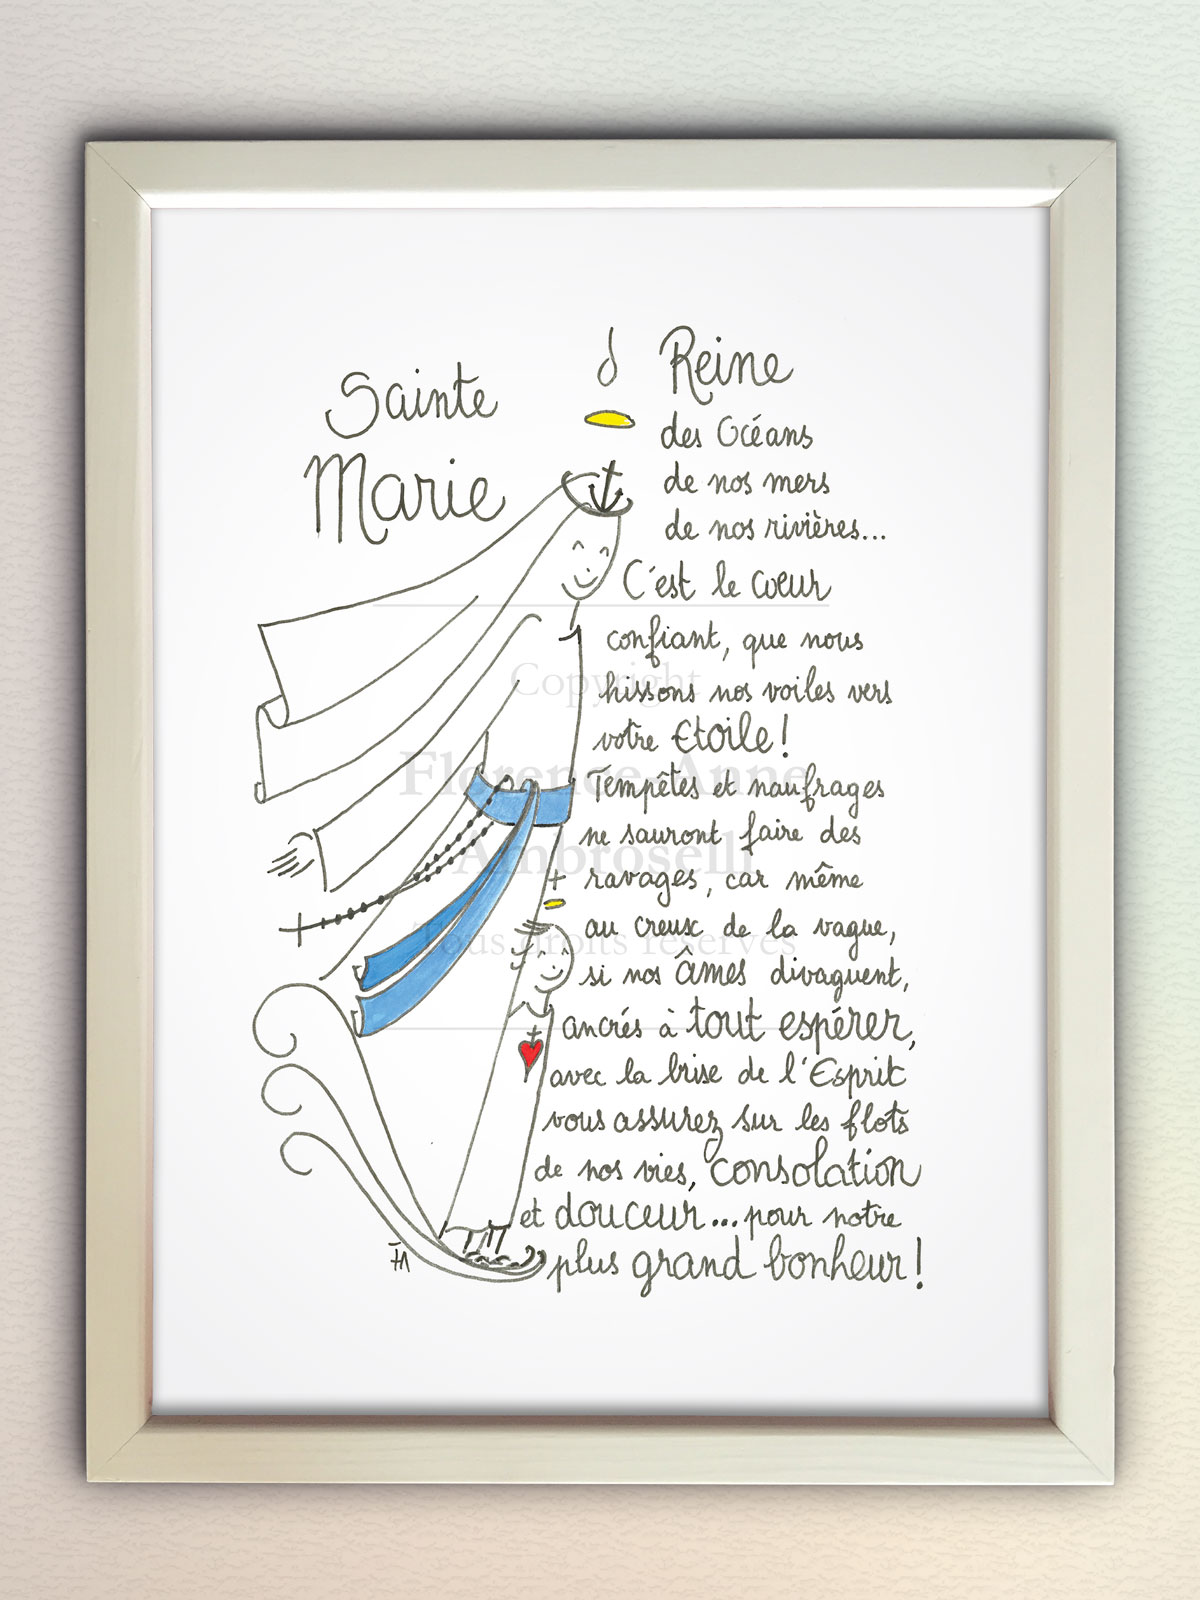 Sainte
Marie
Reine
des Océans
de nos mers
de nos rivières...
C'est le coeur
confiant, que nous
hissons nos voiles vers
votre Etoile !
Tempêtes et naufrages
ne sauront faire des
ravages, car même
au creux de la vague,
si nos âmes divaguent,
ancrés à tout espérer,
avec la brise de l'Esprit
vous assurez sur les flots
de nos vies, consolation
et douceur... pour notre
plus grand bonheur !
Copyright
Florence-Anne
Ambroselli
Tous droits réservés